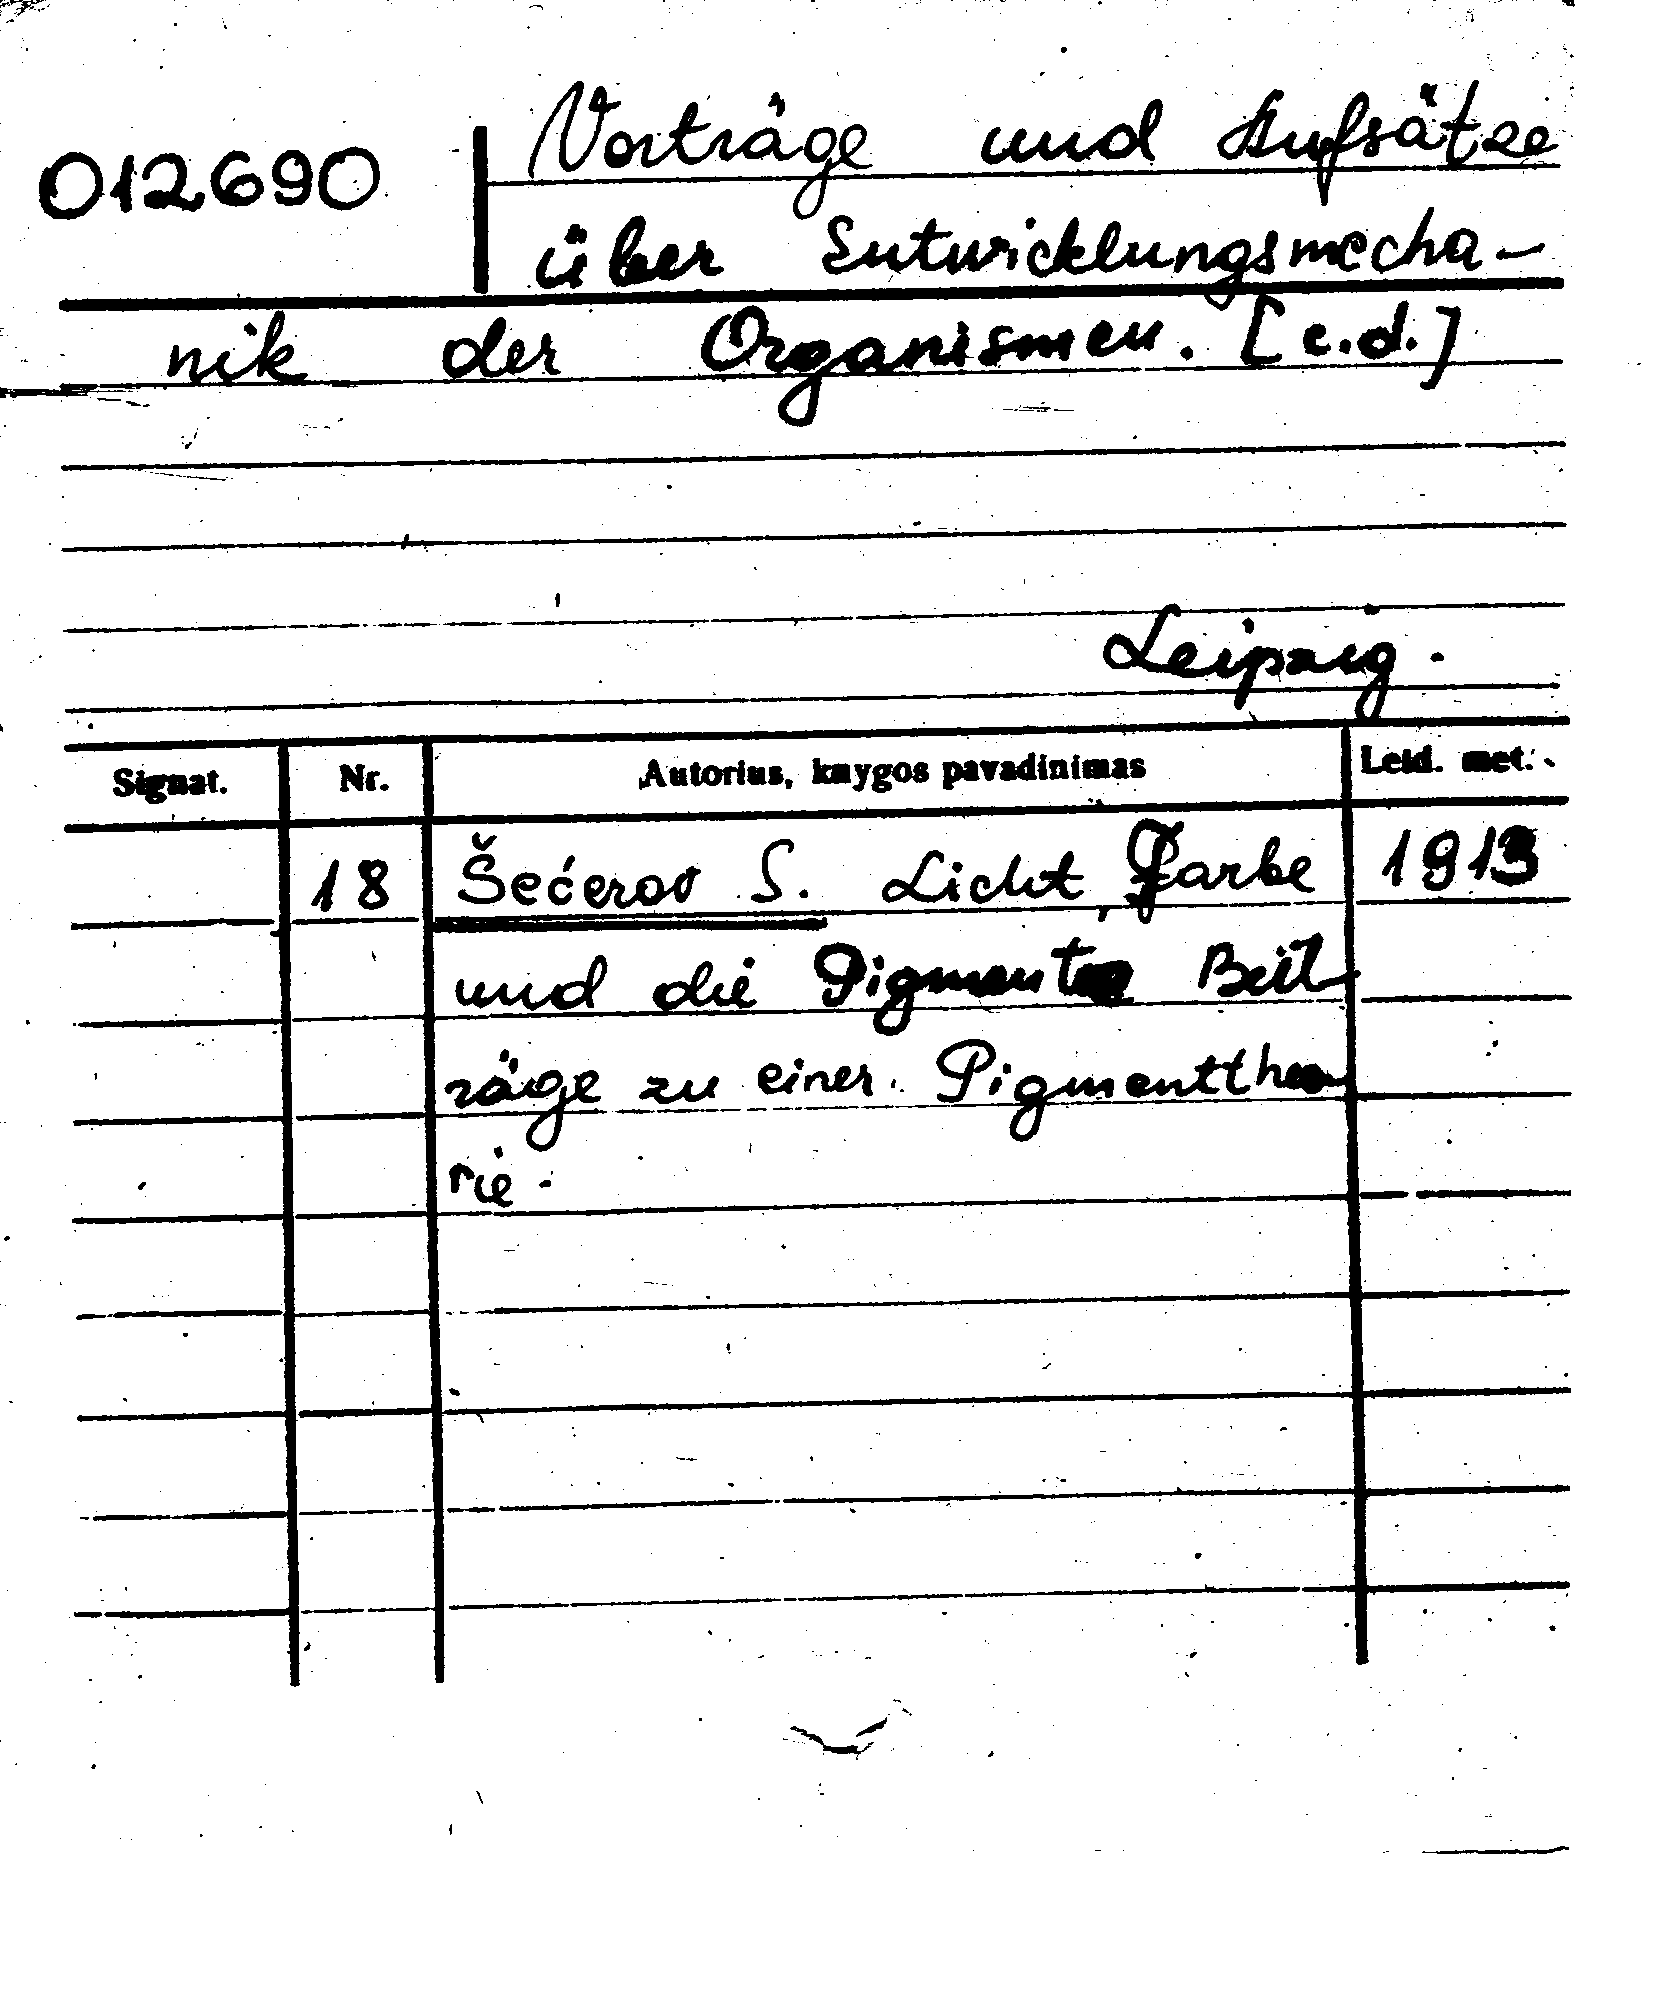 Vorträge und Aufsätze
012690
über Entwicklungsmecha-
nik der Organismen. [e.d.]
Leipzig.
Signat. Nr. Autorius, knygos pavadinimas Leid. met.
18 Šećerov S. Licht, Farbe 1913
und die Pigmente Beit-
räge zu einer Pigmenttheo-
rie.